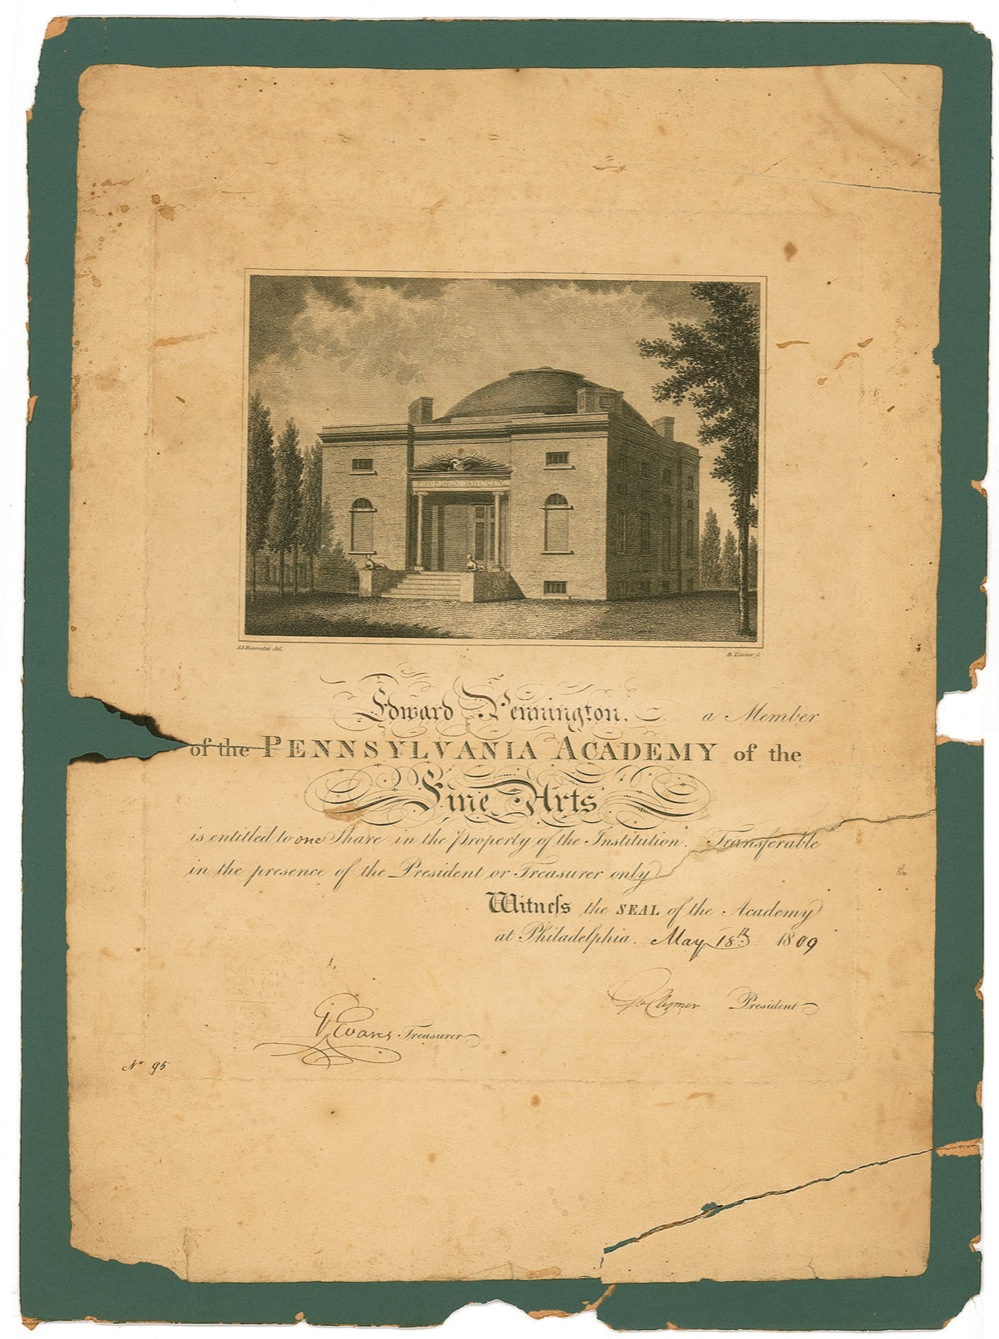 J.J. Barralet del.
B. Tanner sc.
Edward Pennington. a Member
of the PENNSYLVANIA ACADEMY of the
Fine Arts
is entitled to one Share in the Property of the Institution. Transferable
in the presence of the President or Treasurer only
Witneſs the SEAL of the Academy
at Philadelphia. May 18th 1809
Geo Clymer President
G Evans Treasurer
No 95